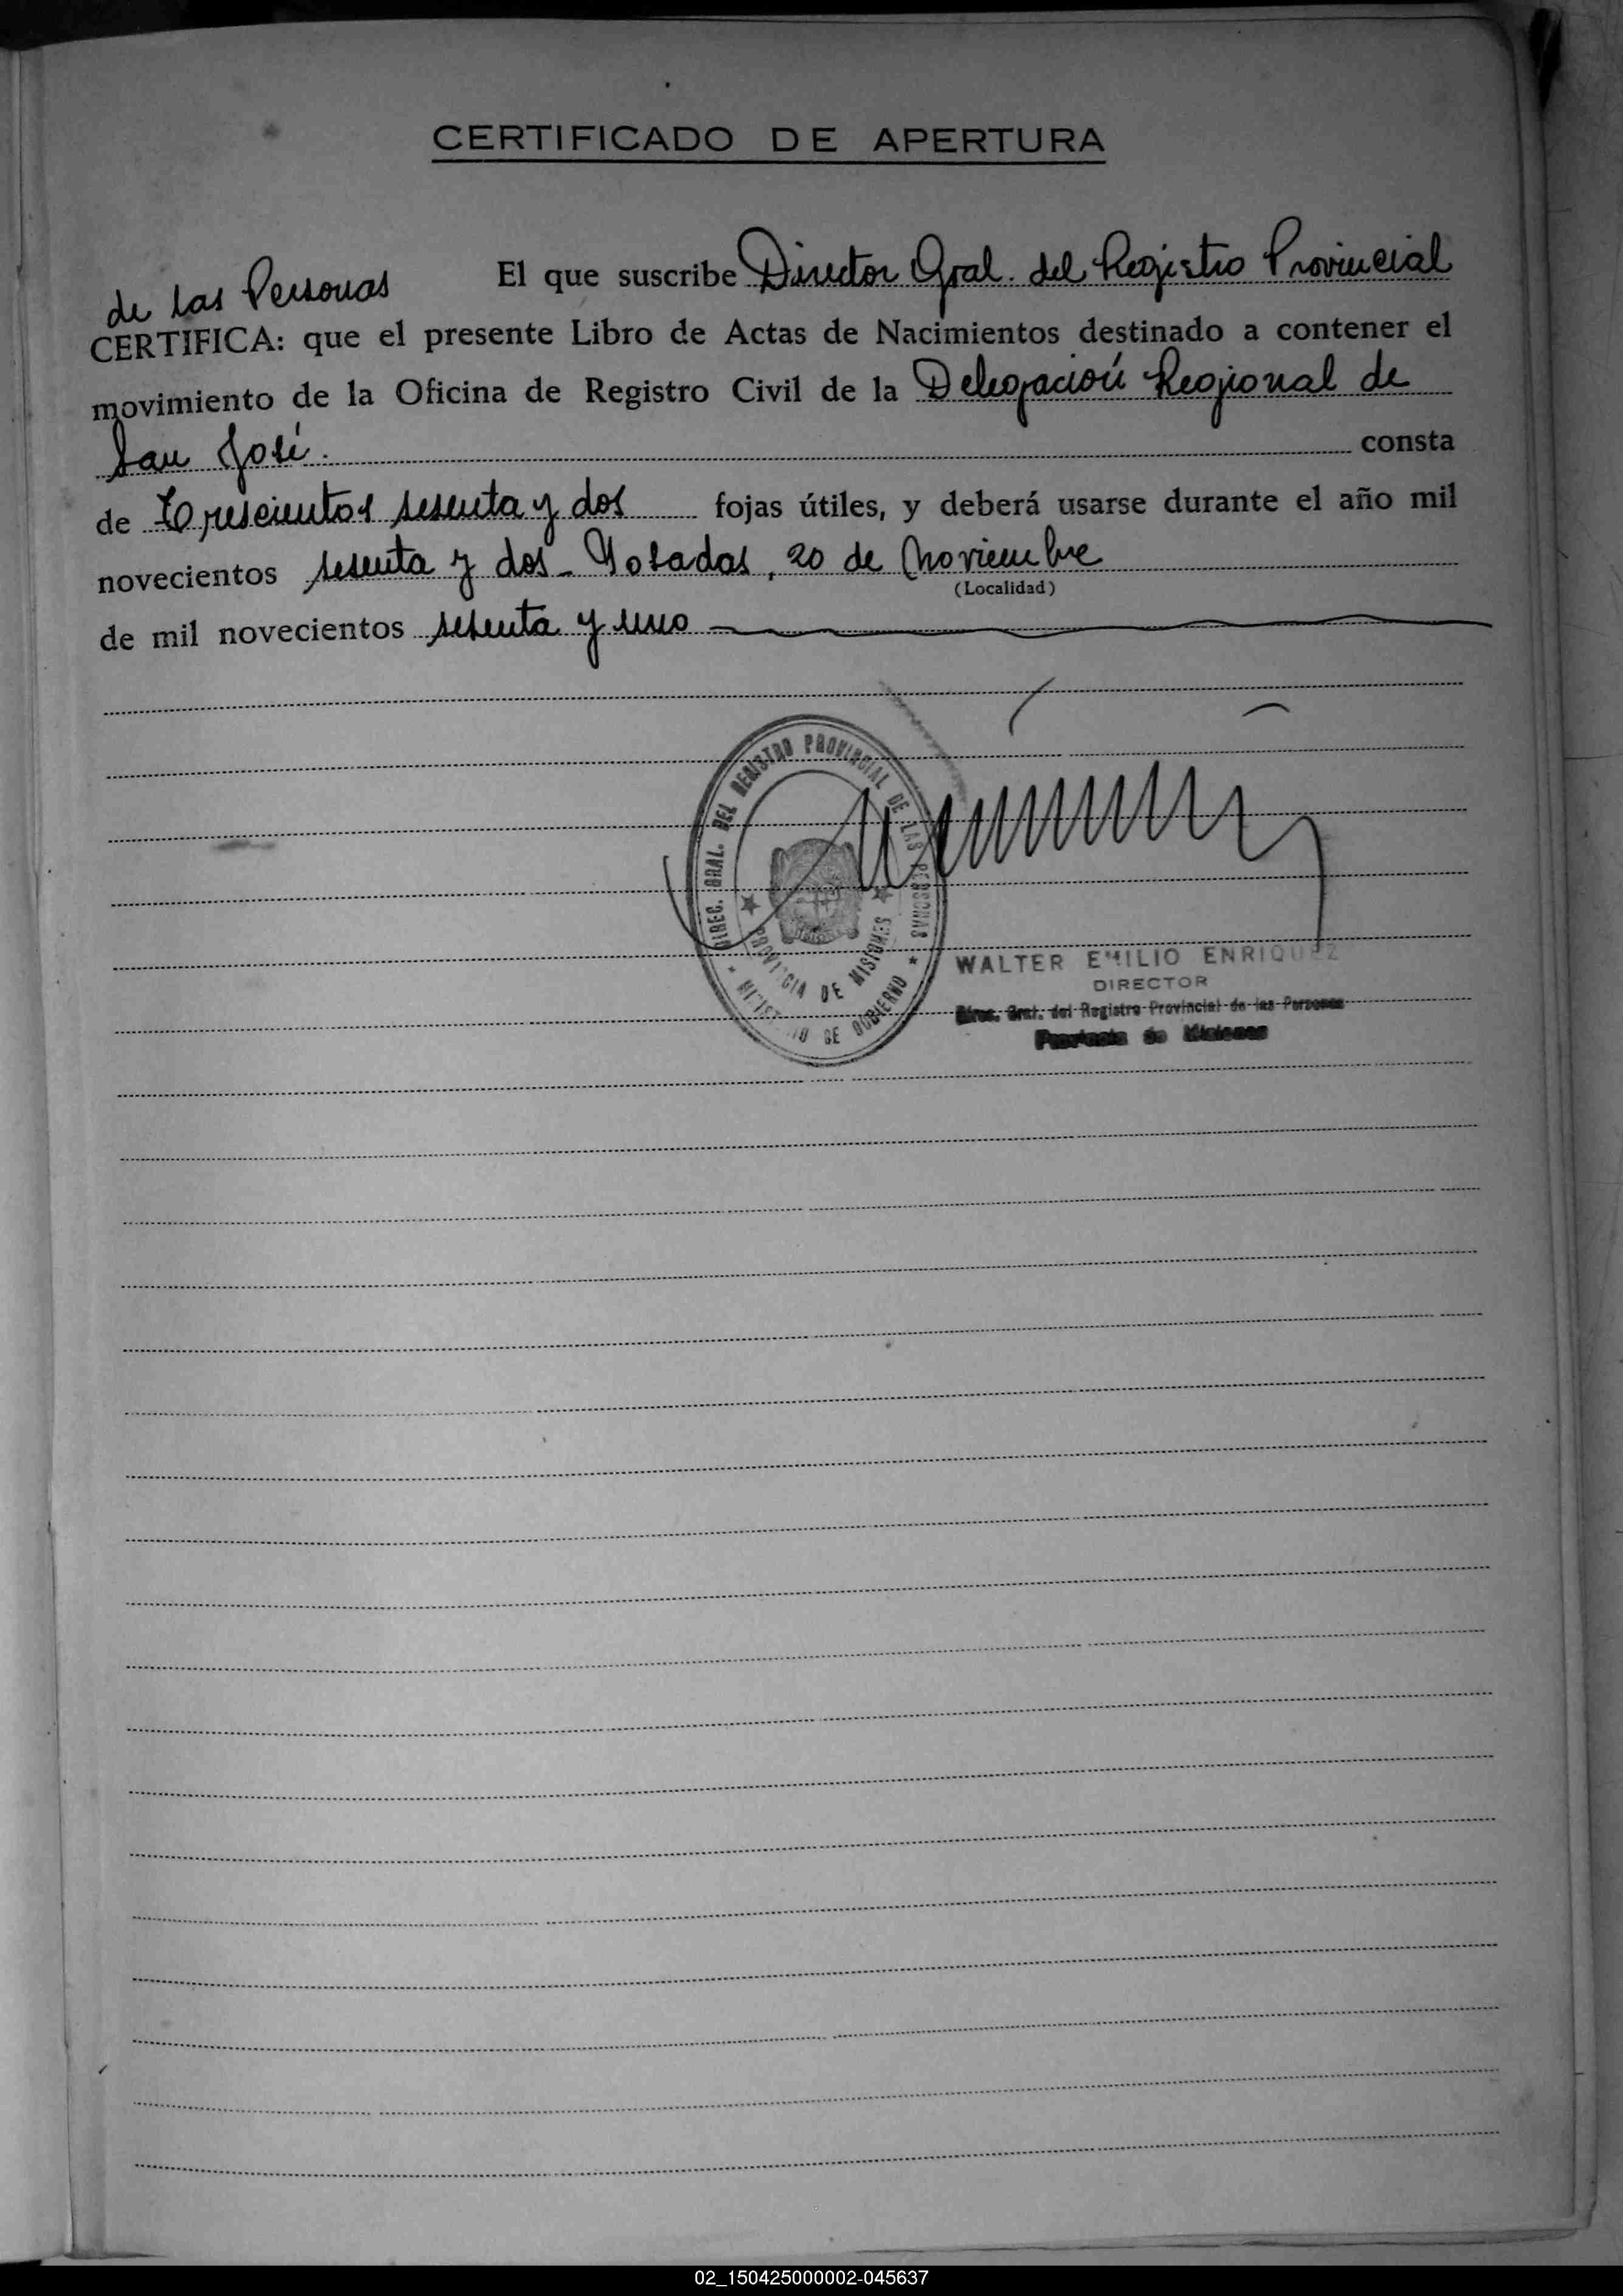 CERTIFICADO DE APERTURA
El que suscribe Director Gral. del Registro Provincial
de las Personas
CERTIFICA: que el presente Libro de Actas de Nacimientos destinado a contener el
movimiento de la Oficina de Registro Civil de la Delegación Regional de
San José. consta
de Trescientos sesenta y dos fojas útiles, y deberá usarse durante el año mil
novecientos sesenta y dos - Posadas, 20 de Noviembre
(Localidad)
de mil novecientos sesenta y uno
DIREC. GRAL. DEL REGISTRO PROVINCIAL DE LAS PERSONAS
PROVINCIA DE MISIONES
MINISTERIO DE GOBIERNO
WALTER EMILIO ENRIQUEZ
DIRECTOR
Direc. Gral. del Registro Provincial de las Personas
Provincia de Misiones
02_150425000002-045637